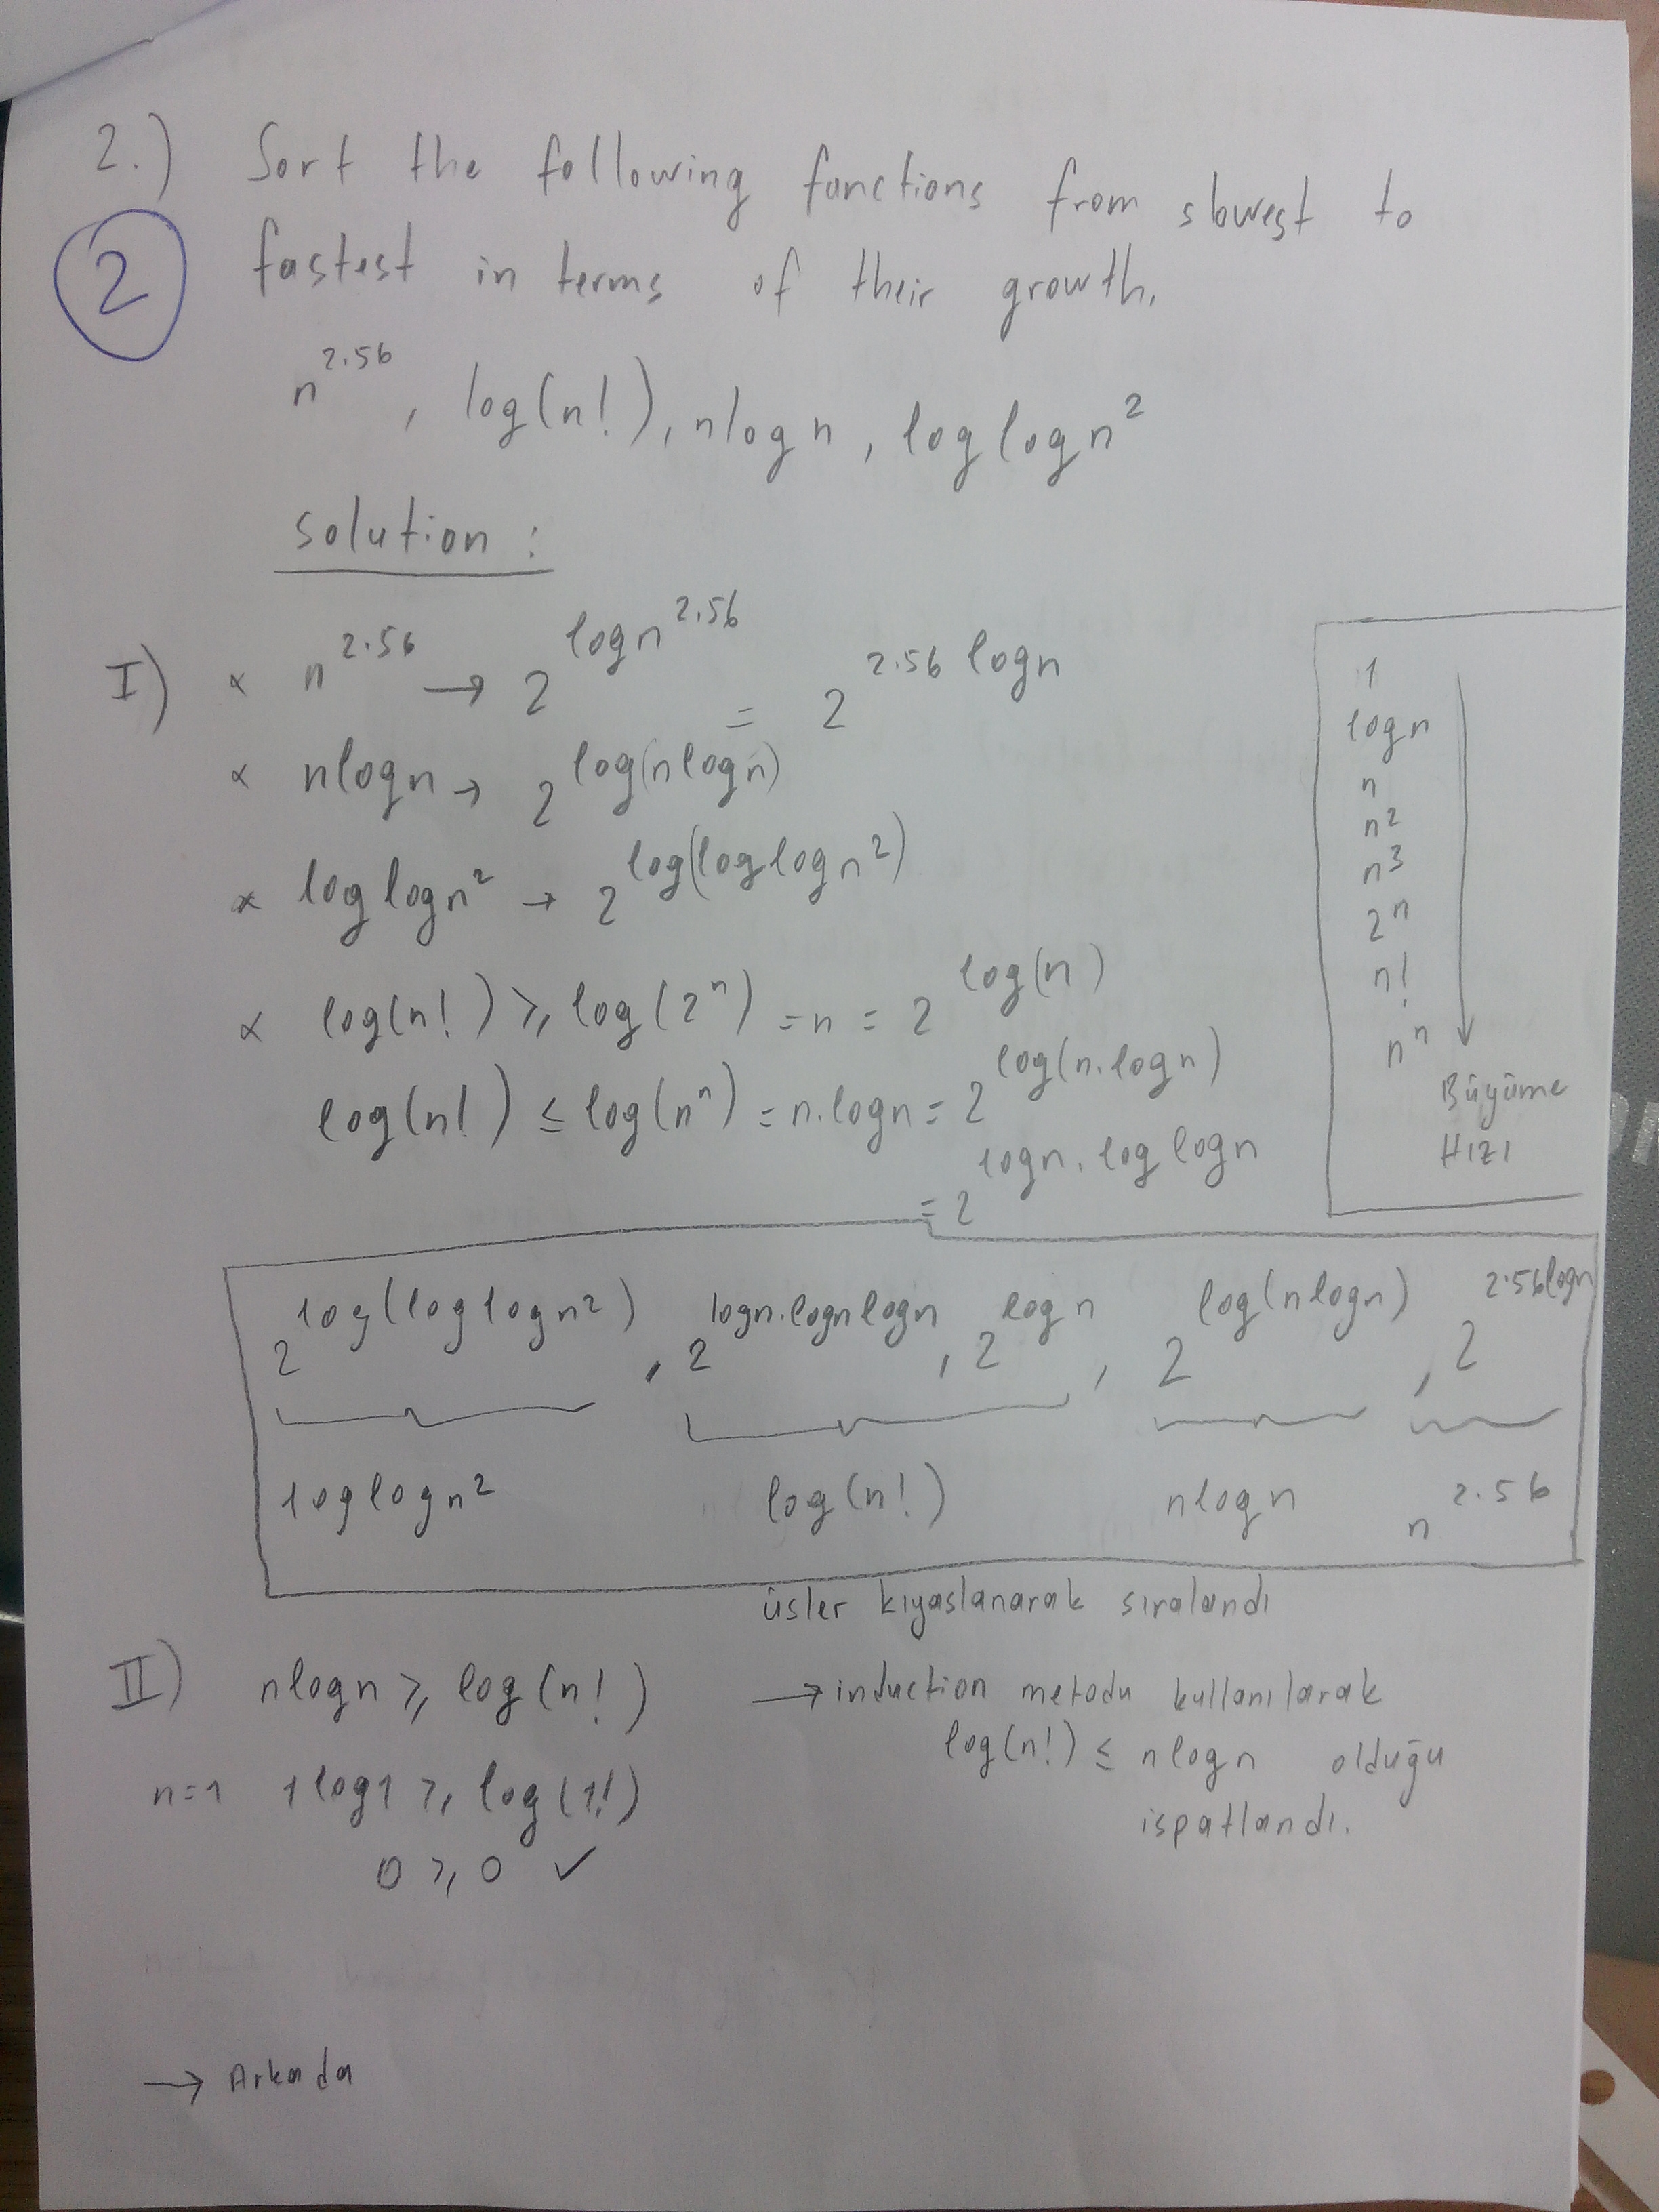 2.) Sort the following functions from slowest to
② fastest in terms of their growth.
n^2.56 , log(n!), nlogn , loglogn²
solution :
I) × n^2.56 → 2^logn^2.56 = 2^2.56 logn
× nlogn → 2^log(nlogn)
× loglogn² → 2^log(loglogn²)
× log(n!) ≥ log(2^n) = n = 2^log(n)
log(n!) ≤ log(n^n) = n.logn = 2^log(n.logn)
= 2^logn.loglogn
1
logn
n
n²
n³
2^n
n!
n^n
Büyüme
Hızı
2^log(loglogn²) , 2^logn.lognlogn , 2^logn , 2^log(nlogn) , 2^2.56logn
loglogn² log(n!) nlogn n^2.56
üsler kıyaslanarak sıralandı
II) nlogn ≥ log(n!) → induction metodu kullanılarak
log(n!) ≤ nlogn olduğu
ispatlandı.
n=1 1log1 ≥ log(1!)
0 ≥ 0 ✓
→ Arkada